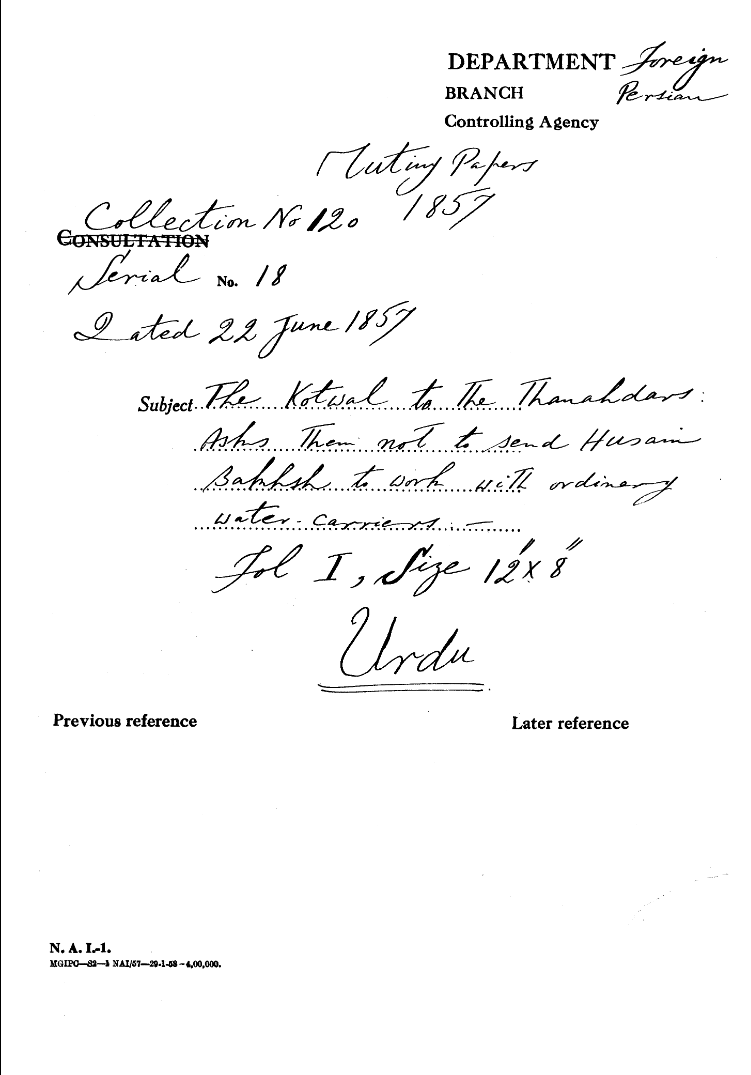 DEPARTMENT Foreign
BRANCH Persian
Controlling Agency
Mutiny Papers
1857
Collection No 120
CONSULTATION
Serial No. 18
Dated 22 June 1857
Subject The Kotwal to The Thanahdars:
Asks Them not to send Husain
Bakhsh to work with ordinary
water-carriers.—
Fol I, Size 12" x 8"
Urdu
Previous reference Later reference
N. A. I.-1.
MGIPC—S2—5 NAI/57—29-1-58—4,00,000.